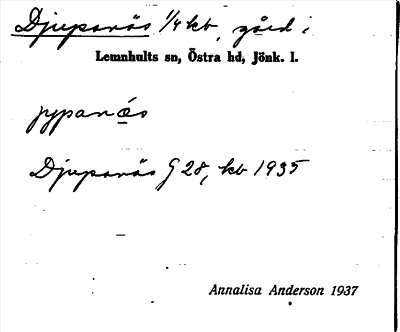 Djupanäs 1/4 kb, gård i
Lemnhults sn, Östra hd, Jönk. l.
jypanás
Djupanäs G 28, kb 1935
Annalisa Anderson 1937